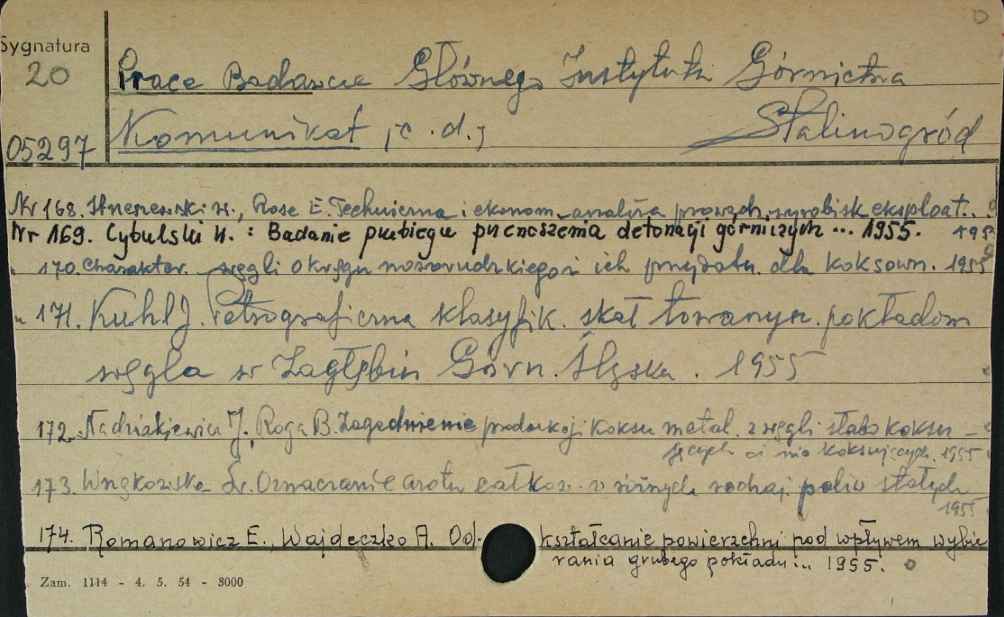 Sygnatura
20
05297
Prace Badawcze Głównego Instytutu Górnictwa
Komunikat, c.d., Stalinogród
Nr 168. w., Rose E. Techniczna i ekonom. analiza prowadz. wyrobisk eksploat... 195
Nr 169. Cybulski W.: Badanie przebiegu przenoszenia detonacji górniczych ... 1955.
" 170. Charakter. węgli okręgu noworudzkiego i ich przydatn. dla koksown. 1955
" 171. Kuhl J. Petrograficzna klasyfik. skał towarzysz. pokładom
węgla w Zagłębiu Górn. Śląska. 1955
172. Nadziakiewicz J., Roga B. Zagadnienie produkcji koksu metal. z węgli słabo koksu-
jących i nie koksujących. 1955
173. Oznaczanie azotu całkow. w różnych rodzaj. paliw stałych
1955
174. Romanowicz E., Wajdeczko A. Od- kształcanie powierzchni pod wpływem wybie
rania grubego pokładu... 1955.
Zam. 1114 - 4. 5. 54 - 8000